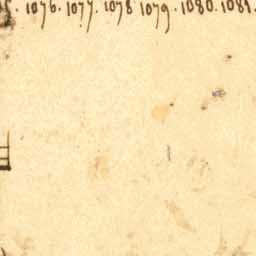 . 1076. 1077. 1078 1079. 1080. 1081.